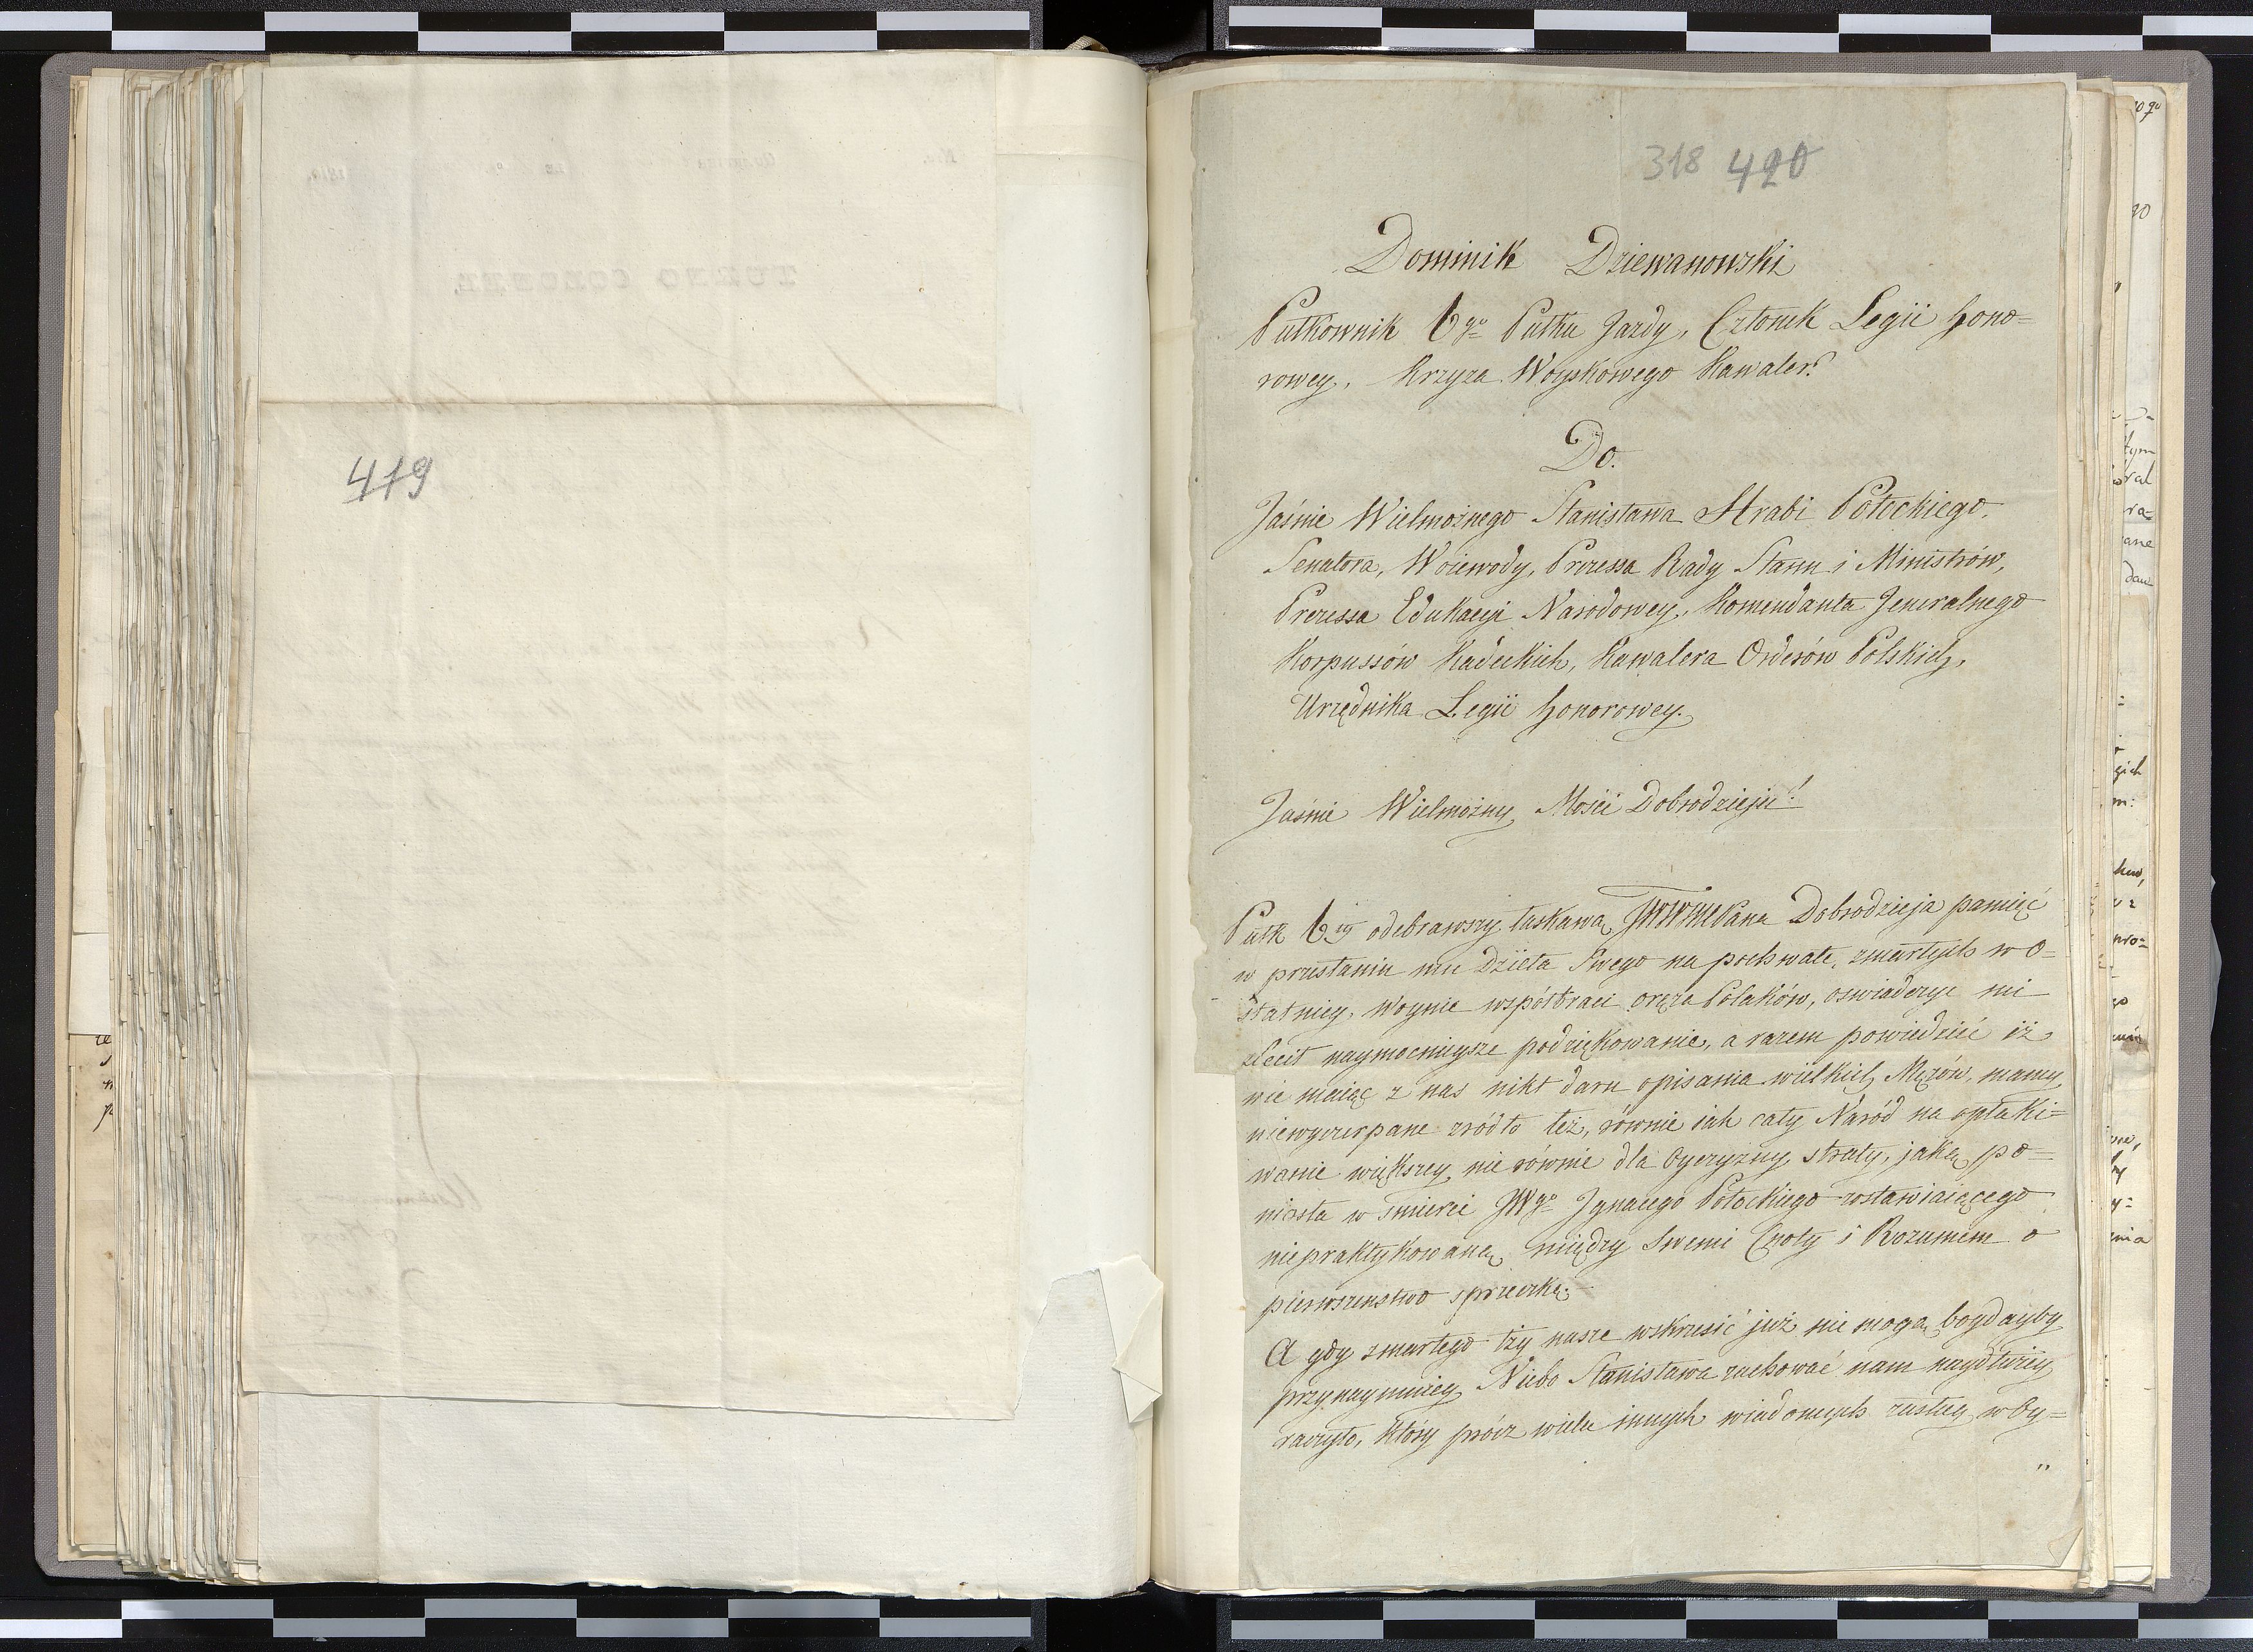 419
318 420
Dominik Dziewanowski
Pułkownik 6go Pułku Jazdy, Członek Legii Hono=
rowey, Krzyża Woyskowego Kawaler.
Do.
Jaśnie Wielmożnego Stanisława Hrabi Potockiego.
Senatora, Woiewody, Prezessa Rady Stanu i Ministrów,
Prezessa Edukacyi Narodowey, Komendanta Jeneralnego
Korpussów Kadeckich, Kawalera Orderów Polskich,
Urzędnika Legii Honorowey.
Jaśnie Wielmożny Mości Dobrodzieju!
Pułk 6ty odebrawszy łaskawą JWWMPana Dobrodzieja pamięć
w przesłaniu mu Dzieła Swego na pochwałę, zmarłych w o=
statniey, Woynie współbraci oręża Polaków, oswiadczyć mi
zlecił naymocnieysze podziękowanie, a razem powiedzieć iż
nie maiąc z nas nikt daru opisania wielkich Mężów, mamy
niewyczerpane zródło łez, równie iak cały Naród na opłaki=
wanie większey, nierównie dla Oyczyzny straty, jaką po=
niosła w smierci JWgo Jgnacego Potockiego zostawiaiącego
niepraktykowaną między Swemi Cnoty i Rozumem o
pierwszenstwo sprzeczkę.
A gdy zmarłego łzy nasze wskrzesić już nie mogą, bogdayby
przynaymniey Niebo Stanisława zachować nam naydłużey
raczyło, który prócz wielu innych wiadomych zasług, w by=
"